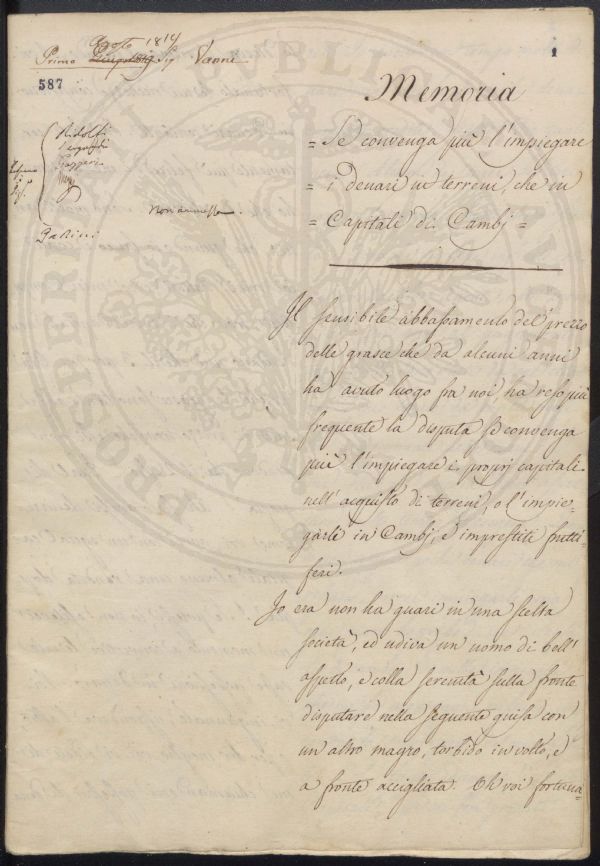 1814
Primo Sig Vanni
587
1
Memoria
= Se convenga più l'impiegare
= i denari in terreni, che in
= Capitali di Cambj =
Ridolfi
Gazzeri
non ammessa.
Il sensibile abbassamento del prezzo
delle grasce che da alcuni anni
ha avuto luogo fra noi, ha reso più
frequente la disputa se convenga
più l'impiegare i proprj capitali
nell'acquisto di terreni, o l'impie-
garli in Cambj, e imprestiti frutti-
feri.
Io era non ha guari in una scelta
società, ed udiva un uomo di bell'
aspetto, e colla serenità sulla fronte
disputare nella seguente guisa con
un altro magro, torbido in volto, e
a fronte accigliata. Oh voi fortuna-